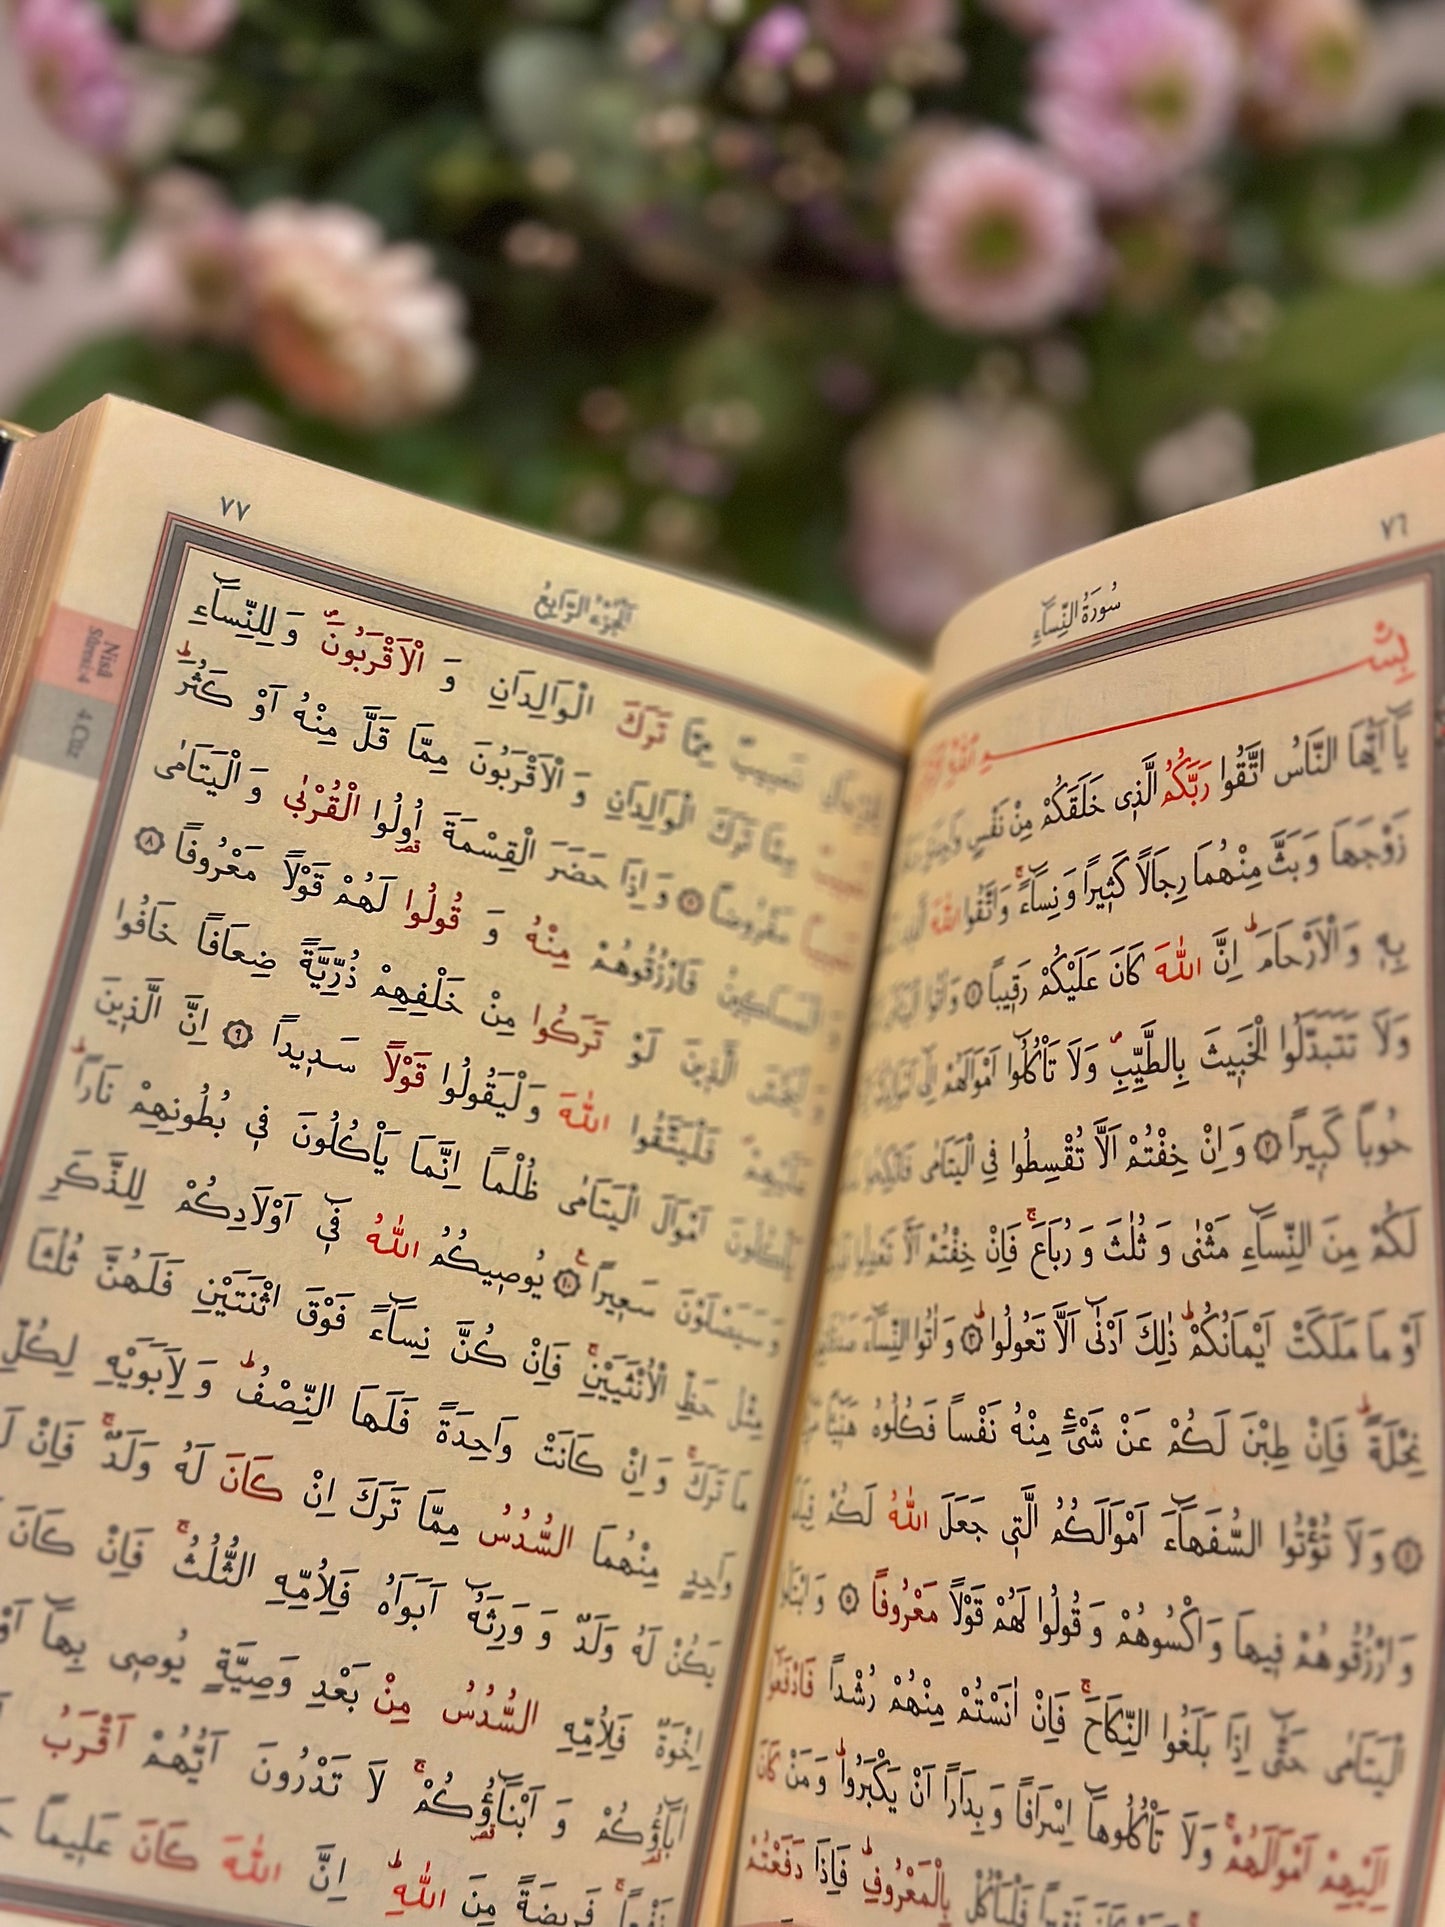 ٧٦
سُورَةُ النِّسَاءِ
بِسْــــمِ
يَٓا اَيُّهَا النَّاسُ اتَّقُوا رَبَّكُمُ الَّذ۪ي خَلَقَكُمْ مِنْ نَفْسٍ
زَوْجَهَا وَبَثَّ مِنْهُمَا رِجَالًا كَث۪يرًا وَنِسَٓاءًۚ وَاتَّقُوا اللّٰهَ
بِه۪ وَالْاَرْحَامَۜ اِنَّ اللّٰهَ كَانَ عَلَيْكُمْ رَق۪يبًا ١ وَاٰتُوا
وَلَا تَتَبَدَّلُوا الْخَب۪يثَ بِالطَّيِّبِۖ وَلَا تَأْكُلُٓوا اَمْوَالَهُمْ اِلٰٓى
حُوبًا كَب۪يرًا ٢ وَاِنْ خِفْتُمْ اَلَّا تُقْسِطُوا فِي الْيَتَامٰى
لَكُمْ مِنَ النِّسَٓاءِ مَثْنٰى وَثُلٰثَ وَرُبَاعَۚ فَاِنْ خِفْتُمْ اَلَّا تَعْدِلُوا
اَوْ مَا مَلَكَتْ اَيْمَانُكُمْۜ ذٰلِكَ اَدْنٰٓى اَلَّا تَعُولُواۜ ٣ وَاٰتُوا النِّسَٓاءَ
نِحْلَةًۜ فَاِنْ طِبْنَ لَكُمْ عَنْ شَيْءٍ مِنْهُ نَفْسًا فَكُلُوهُ
٤ وَلَا تُؤْتُوا السُّفَهَٓاءَ اَمْوَالَكُمُ الَّت۪ي جَعَلَ اللّٰهُ لَكُمْ
وَارْزُقُوهُمْ ف۪يهَا وَاكْسُوهُمْ وَقُولُوا لَهُمْ قَوْلًا مَعْرُوفًا ٥
الْيَتَامٰى حَتّٰٓى اِذَا بَلَغُوا النِّكَاحَۚ فَاِنْ اٰنَسْتُمْ مِنْهُمْ رُشْدًا فَادْفَعُٓوا
اِلَيْهِمْ اَمْوَالَهُمْۚ وَلَا تَأْكُلُوهَٓا اِسْرَافًا وَبِدَارًا اَنْ يَكْبَرُواۜ وَمَنْ كَانَ
فَلْيَأْكُلْ بِالْمَعْرُوفِۜ فَاِذَا دَفَعْتُمْ
٧٧
اَلْجُزْءُ الرَّابِعُ
نَص۪يبٌ مِمَّا تَرَكَ الْوَالِدَانِ وَالْاَقْرَبُونَۖ وَلِلنِّسَٓاءِ
مِمَّا تَرَكَ الْوَالِدَانِ وَالْاَقْرَبُونَ مِمَّا قَلَّ مِنْهُ اَوْ كَثُرَۜ
مَفْرُوضًا ٧ وَاِذَا حَضَرَ الْقِسْمَةَ اُو۬لُوا الْقُرْبٰى وَالْيَتَامٰى
فَارْزُقُوهُمْ مِنْهُ وَقُولُوا لَهُمْ قَوْلًا مَعْرُوفًا ٨
الَّذ۪ينَ لَوْ تَرَكُوا مِنْ خَلْفِهِمْ ذُرِّيَّةً ضِعَافًا خَافُوا
فَلْيَتَّقُوا اللّٰهَ وَلْيَقُولُوا قَوْلًا سَد۪يدًا ٩ اِنَّ الَّذ۪ينَ
يَأْكُلُونَ اَمْوَالَ الْيَتَامٰى ظُلْمًا اِنَّمَا يَأْكُلُونَ ف۪ي بُطُونِهِمْ نَارًاۜ
وَسَيَصْلَوْنَ سَع۪يرًا۟ ١٠ يُوص۪يكُمُ اللّٰهُ ف۪ٓي اَوْلَادِكُمْ لِلذَّكَرِ
مِثْلُ حَظِّ الْاُنْثَيَيْنِۚ فَاِنْ كُنَّ نِسَٓاءً فَوْقَ اثْنَتَيْنِ فَلَهُنَّ ثُلُثَا
مَا تَرَكَۚ وَاِنْ كَانَتْ وَاحِدَةً فَلَهَا النِّصْفُۜ وَلِاَبَوَيْهِ لِكُلِّ
وَاحِدٍ مِنْهُمَا السُّدُسُ مِمَّا تَرَكَ اِنْ كَانَ لَهُ وَلَدٌۚ فَاِنْ
يَكُنْ لَهُ وَلَدٌ وَوَرِثَهُٓ اَبَوَاهُ فَلِاُمِّهِ الثُّلُثُۚ فَاِنْ كَانَ
اِخْوَةٌ فَلِاُمِّهِ السُّدُسُ مِنْ بَعْدِ وَصِيَّةٍ يُوص۪ي بِهَٓا
اٰبَٓاؤُ۬كُمْ وَاَبْنَٓاؤُ۬كُمْۚ لَا تَدْرُونَ اَيُّهُمْ اَقْرَبُ
نَفْعًاۚ فَر۪يضَةً مِنَ اللّٰهِۜ اِنَّ اللّٰهَ كَانَ عَل۪يمًا
Nisâ
Sûresi:4
4.Cüz